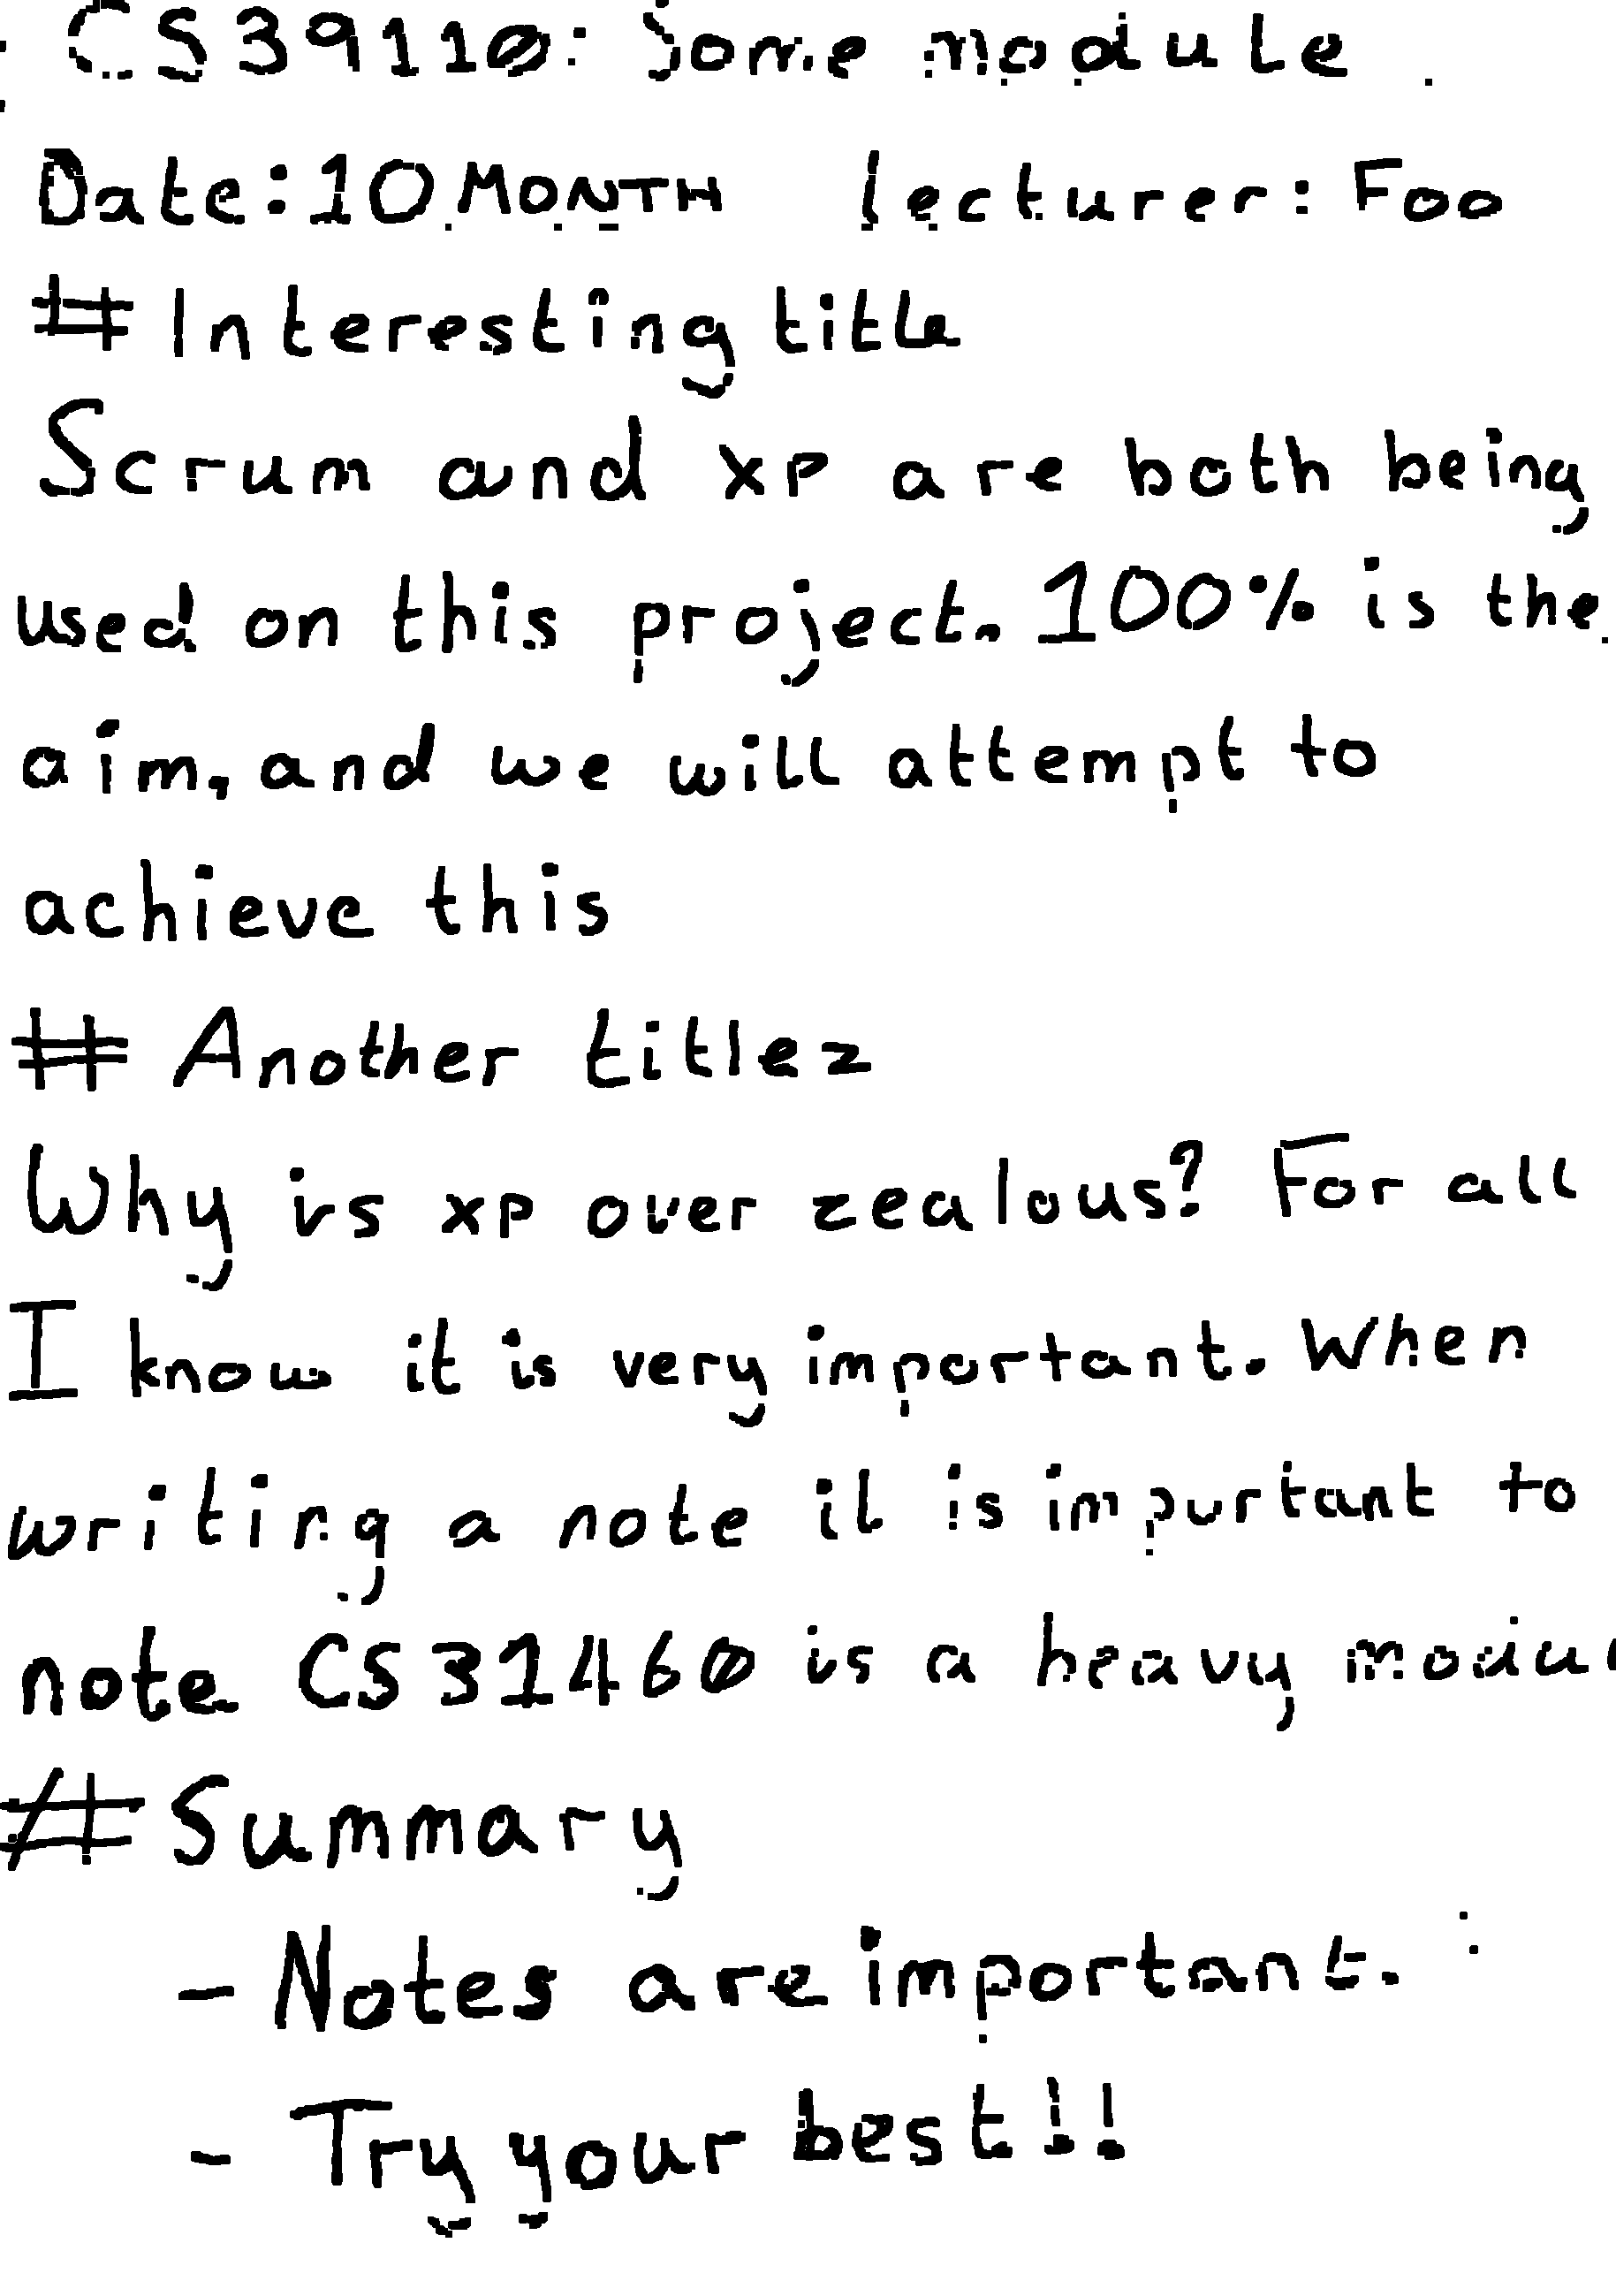 CS39110: Some module
Date: 10 MONTH lecturer: Foo
# Interesting title
Scrum and xp are both being
used on this project. 100% is the
aim, and we will attempt to
achieve this
# Another title2
Why is xp over zealous? For all
I know it is very important. When
writing a note it is important to
note CS31460 is a heavy modul
# Summary
- Notes are important.
- Try your best!!